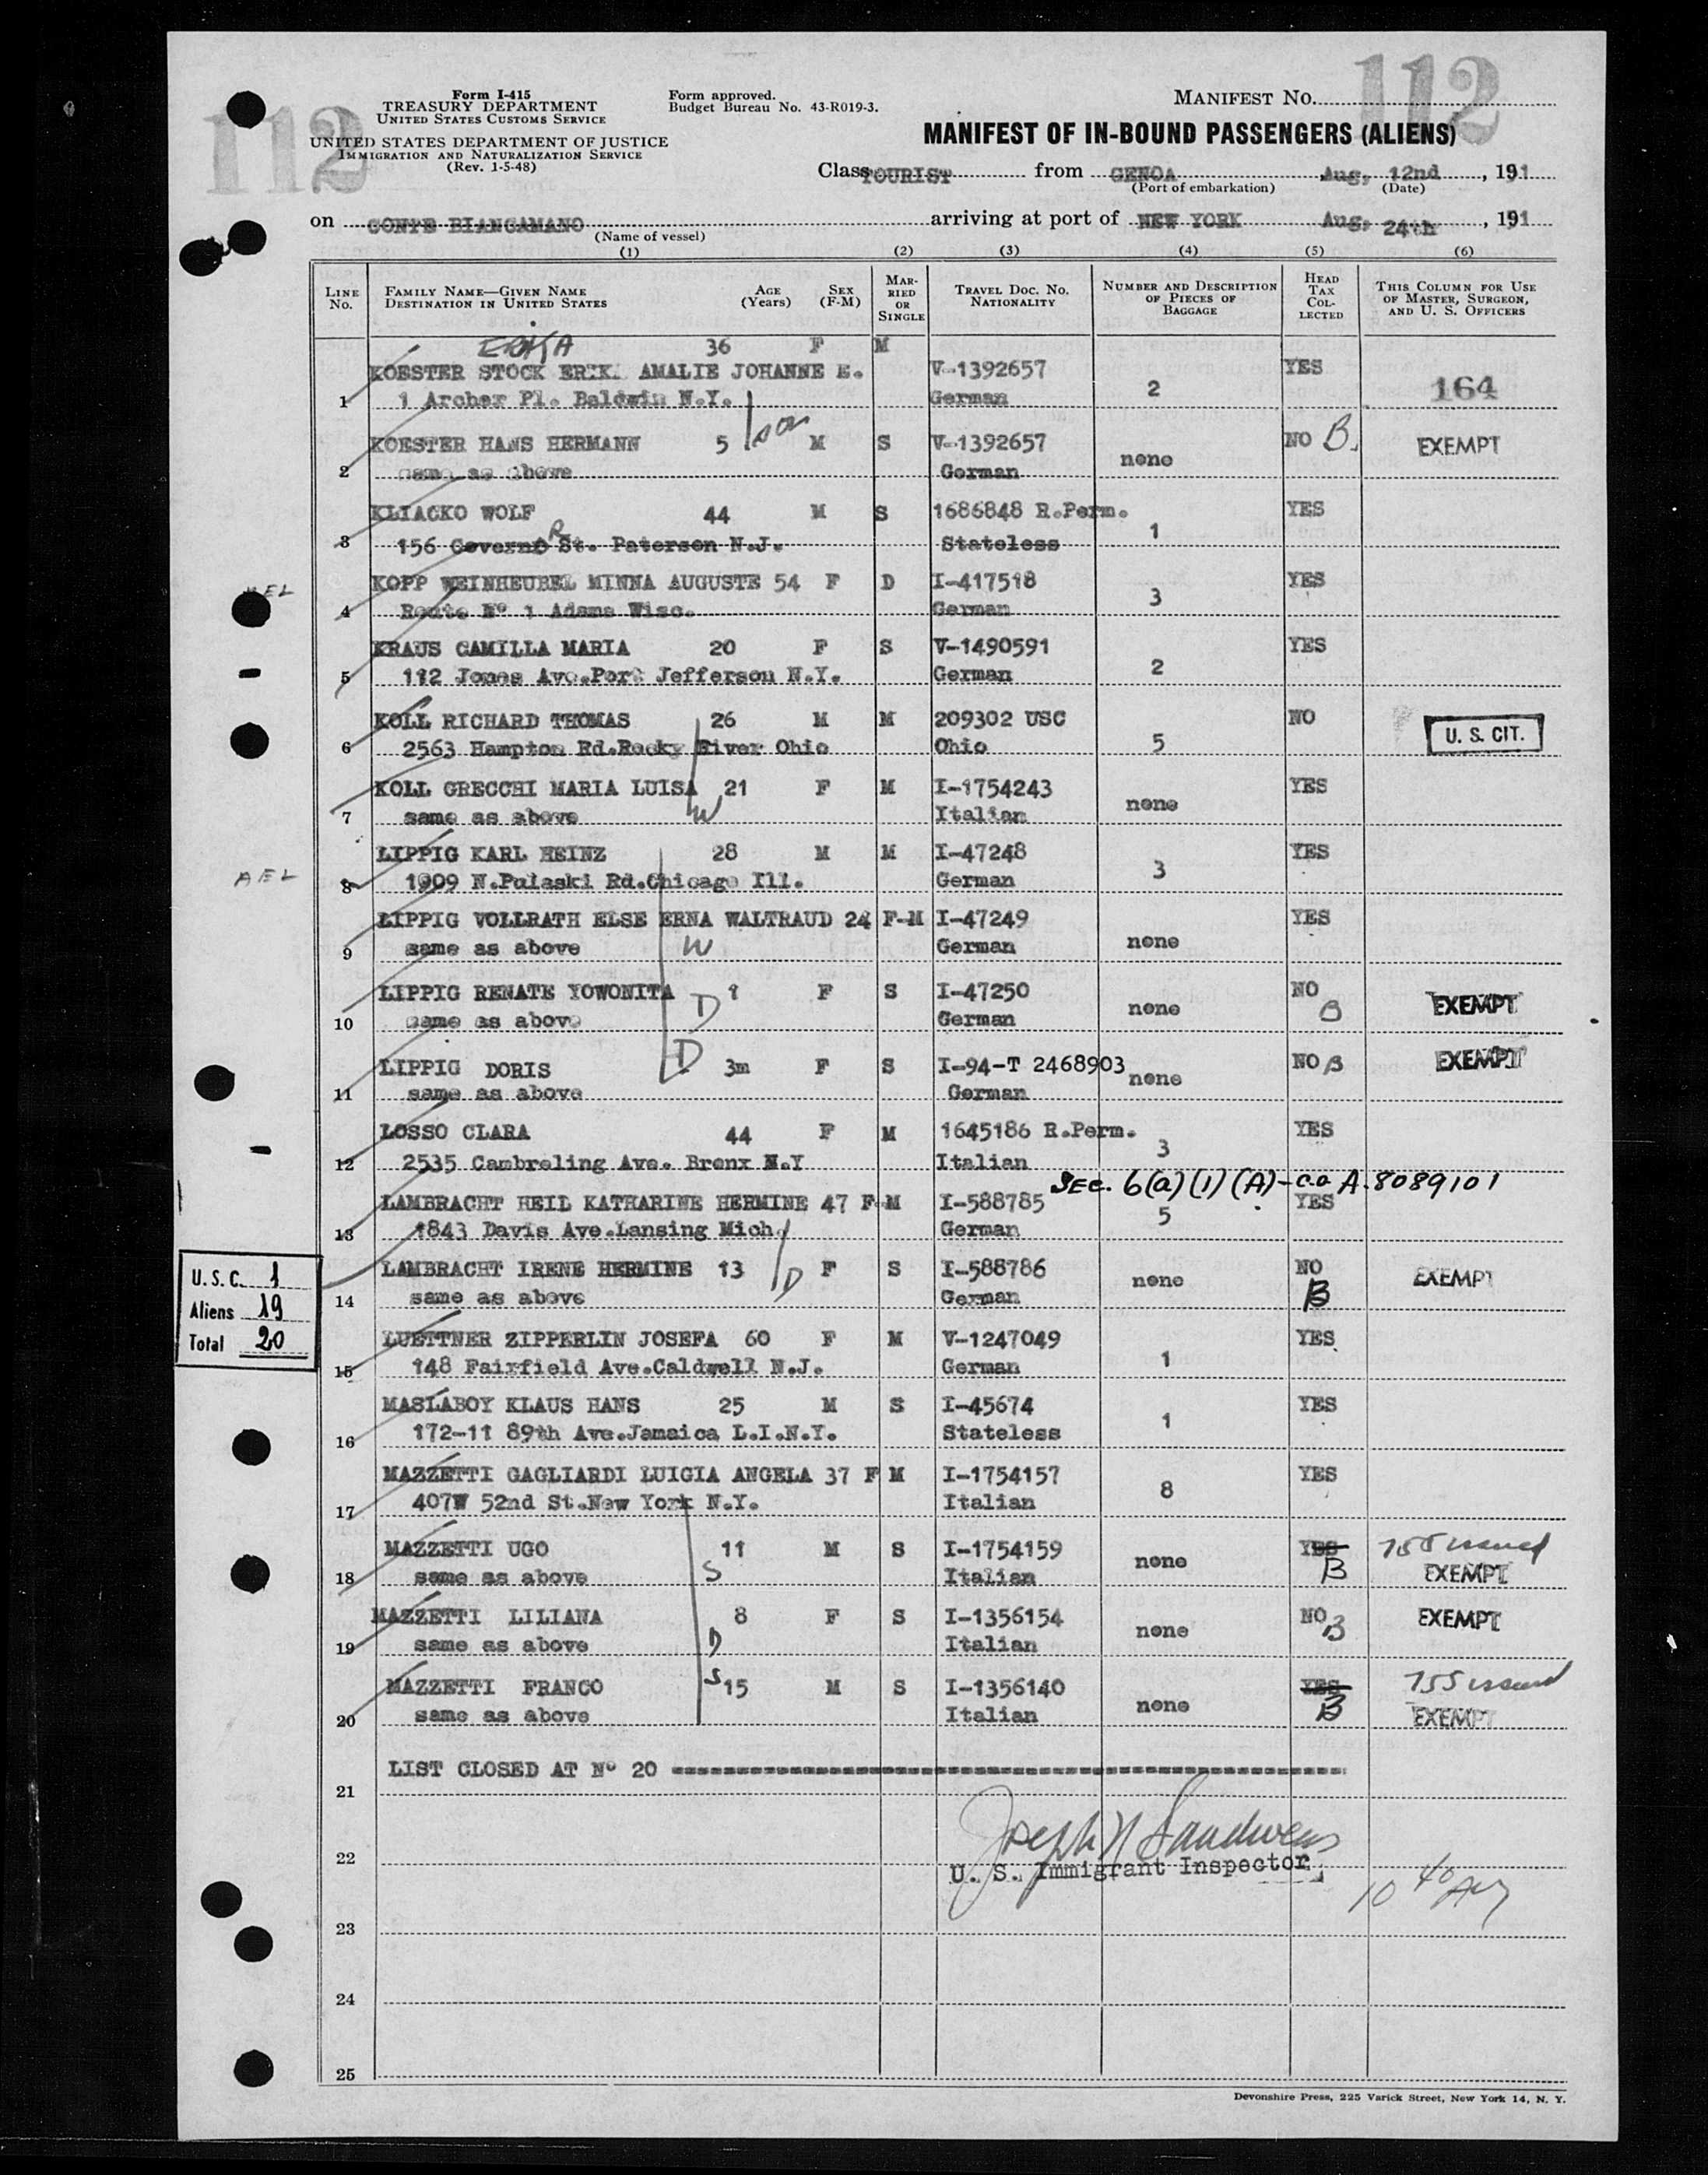 112
112
Form I-415
TREASURY DEPARTMENT
UNITED STATES CUSTOMS SERVICE
UNITED STATES DEPARTMENT OF JUSTICE
IMMIGRATION AND NATURALIZATION SERVICE
(Rev. 1-5-48)
Form approved.
Budget Bureau No. 43-R019-3.
MANIFEST NO.
MANIFEST OF IN-BOUND PASSENGERS (ALIENS)
Class TOURIST from GENOA, Aug, 12nd, 191
(Port of embarkation) (Date)
on CONTE BIANCAMANO arriving at port of NEW YORK Aug, 24th, 191
(Name of vessel)
(1) (2) (3) (4) (5) (6)
LINE NO. FAMILY NAME—GIVEN NAME DESTINATION IN UNITED STATES AGE (Years) SEX (F-M) MARRIED OR SINGLE TRAVEL DOC. NO. NATIONALITY NUMBER AND DESCRIPTION OF PIECES OF BAGGAGE HEAD TAX COLLECTED THIS COLUMN FOR USE OF MASTER, SURGEON, AND U. S. OFFICERS
ERIKA 36 F M
KOESTER STOCK ERIK. AMALIE JOHANNE E. V-1392657 YES
1 1 Archer Pl. Baldwin N.Y. German 2 164
KOESTER HANS HERMANN 5 son M S V-1392657 NO B. EXEMPT
2 same as above German none
KLIACKO WOLF 44 M S 1686848 R.Perm. YES
3 156 Governo R St. Paterson N.J. Stateless 1
KOPP WEINHEUBEL MINNA AUGUSTE 54 F D I-417518 YES
4 Route Nº 1 Adams Wisc. German 3
KRAUS CAMILLA MARIA 20 F S V-1490591 YES
5 112 Jones Ave.Port Jefferson N.Y. German 2
KOLL RICHARD THOMAS 26 M M 209302 USC NO U. S. CIT.
6 2563 Hampton Rd.Rocky River Ohio Ohio 5
KOLL GRECCHI MARIA LUISA 21 F M I-1754243 YES
7 same as above W Italian none
LIPPIG KARL HEINZ 28 M M I-47248 YES
AEL 8 1909 N.Pulaski Rd.Chicago Ill. German 3
LIPPIG VOLLRATH ELSE ERNA WALTRAUD 24 F-M I-47249 YES
9 same as above W German none
LIPPIG RENATE YOWONITA D 1 F S I-47250 NO B EXEMPT
10 same as above German none
LIPPIG DORIS D 3m F S I-94-T 2468903 NO B EXEMPT
11 same as above German none
LOSSO CLARA 44 F M 1645186 R.Perm. YES
12 2535 Cambreling Ave. Bronx N.Y Italian 3
SEC. 6(a)(1)(A)-ca A.8089101
LAMBRACHT HEIL KATHARINE HERMINE 47 F M I-588785 YES
13 1843 Davis Ave.Lansing Mich. German 5
LAMBRACHT IRENE HERMINE 13 D F S I-588786 NO B EXEMPT
14 same as above German none
U.S.C. 1
Aliens 19
Total 20
LUETTNER ZIPPERLIN JOSEFA 60 F M V-1247049 YES
15 148 Fairfield Ave.Caldwell N.J. German 1
MASLABOY KLAUS HANS 25 M S I-45674 YES
16 172-11 89th Ave.Jamaica L.I.N.Y. Stateless 1
MAZZETTI GAGLIARDI LUIGIA ANGELA 37 F M I-1754157 YES
17 407W 52nd St.New York N.Y. Italian 8
MAZZETTI UGO 11 M S I-1754159 YES 755 issued
18 same as above S Italian none B EXEMPT
MAZZETTI LILIANA 8 F S I-1356154 NO B EXEMPT
19 same as above D Italian none
MAZZETTI FRANCO S 15 M S I-1356140 YES 755 issued
20 same as above Italian none B EXEMPT
LIST CLOSED AT Nº 20
21
22
Joseph N Sandwens
U. S. Immigrant Inspector
10 40
23
24
25
Devonshire Press, 225 Varick Street, New York 14, N. Y.